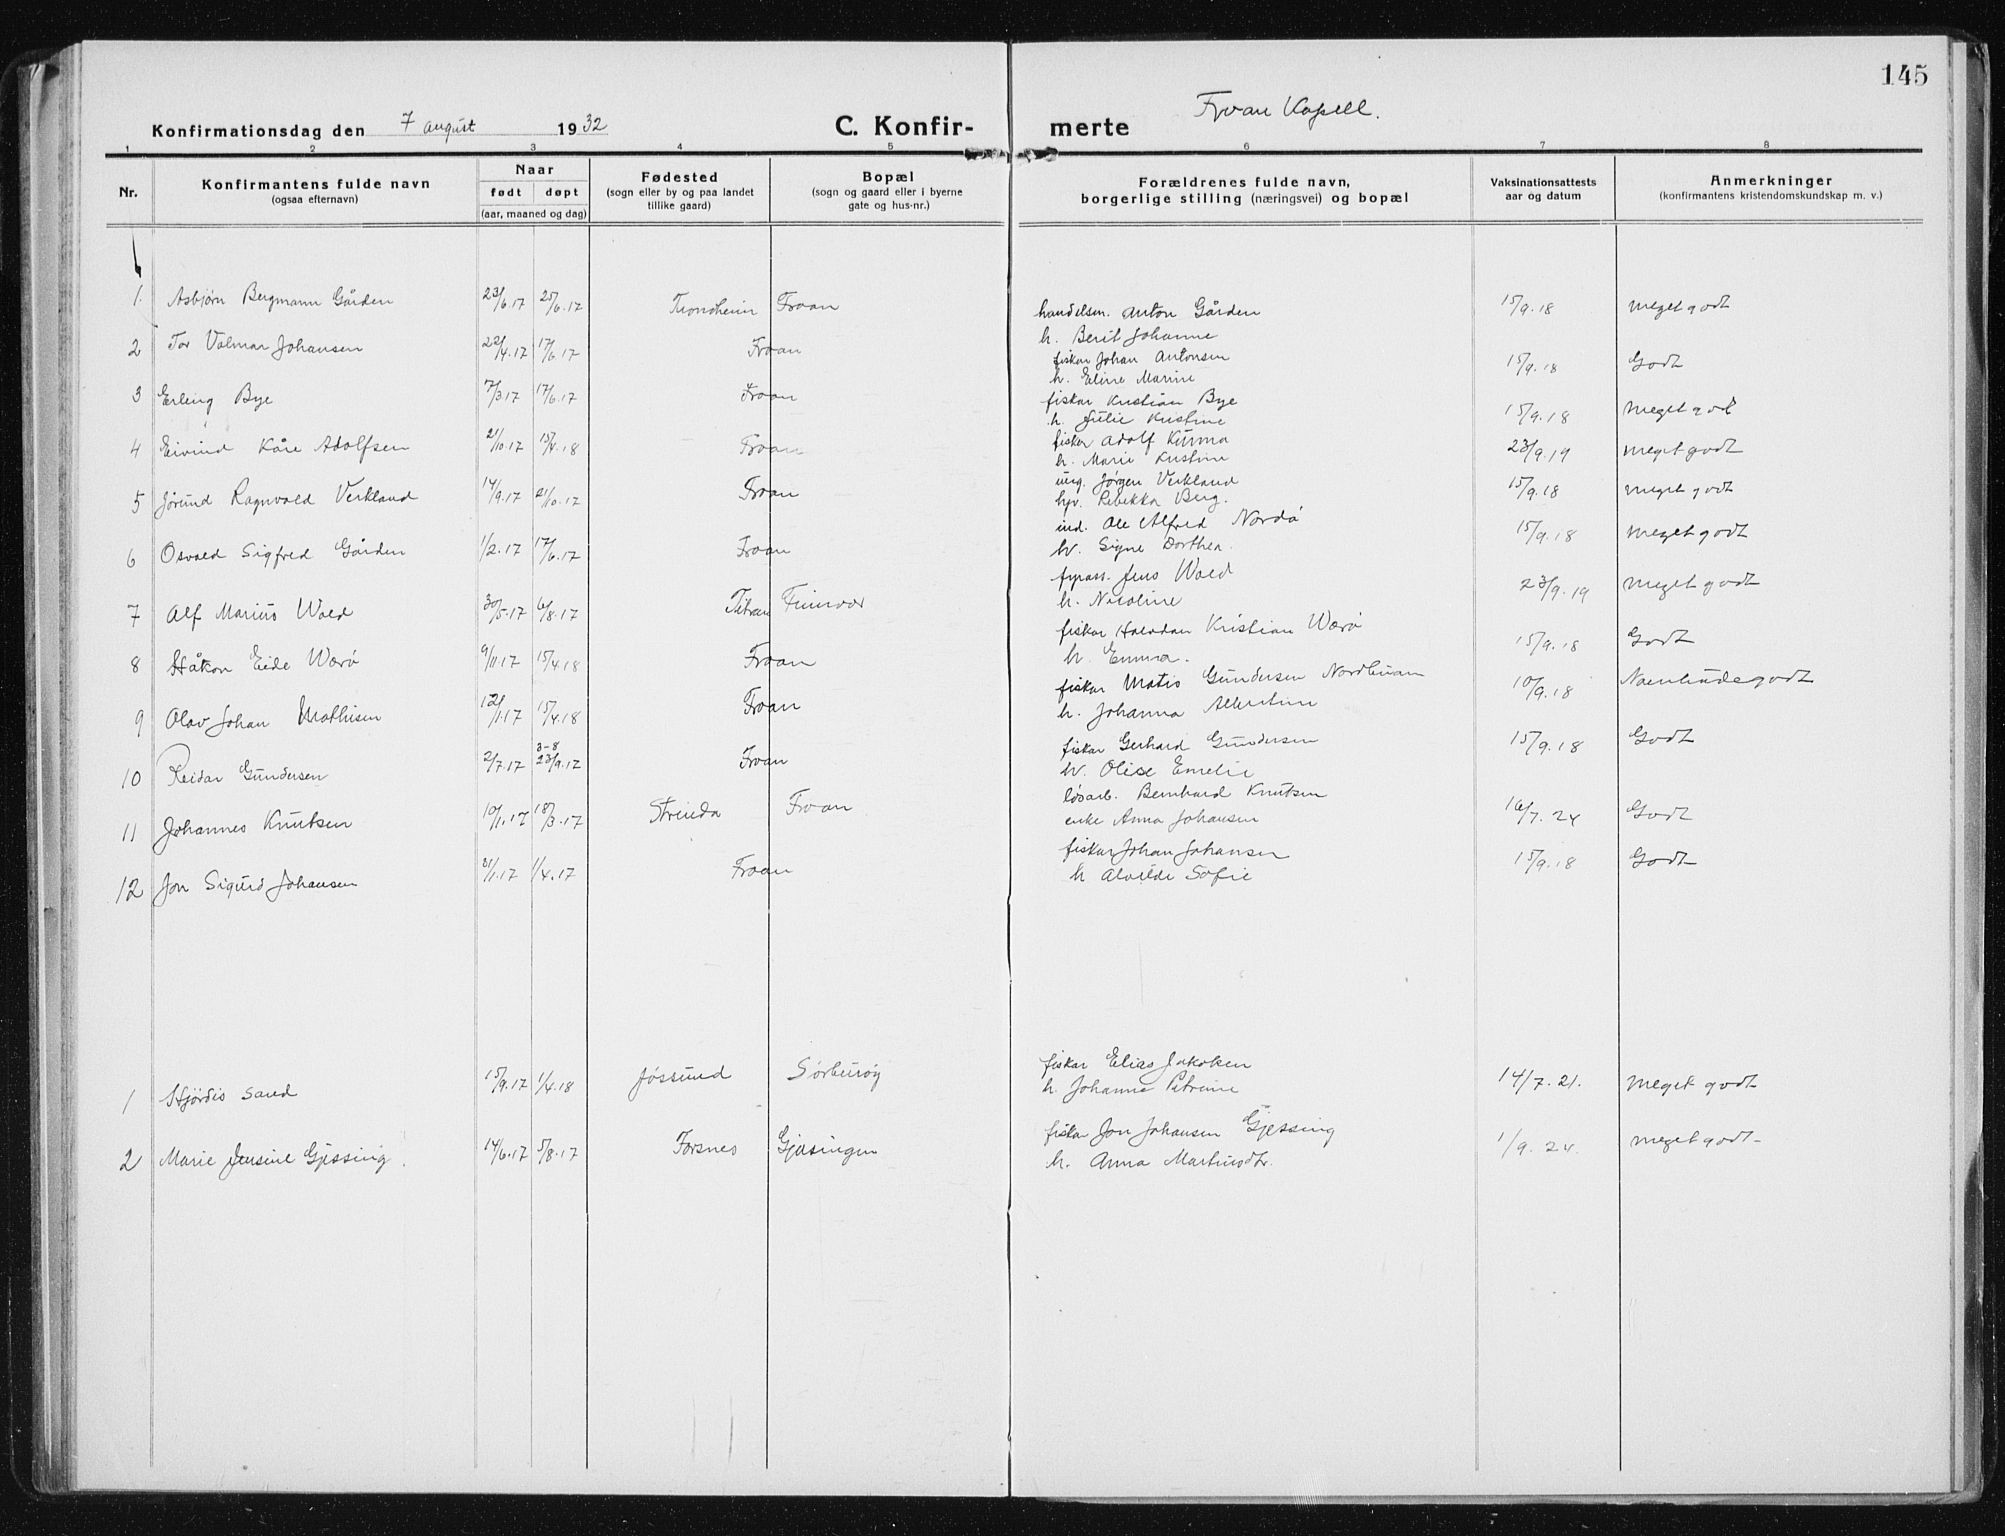 145
Konfirmationsdag den 7 august 1932 C. Konfir- merte Froan Kapell.
1 2 3 4 5 6 7 8
Nr. Konfirmantens fulde navn (ogsaa efternavn) Naar født døpt (aar, maaned og dag) Fødested (sogn eller by og paa landet tillike gaard) Bopæl (sogn og gaard eller i byerne gate og hus-nr.) Forældrenes fulde navn, borgerlige stilling (næringsvei) og bopæl Vaksinationsattests aar og datum Anmerkninger (konfirmantens kristendomskundskap m. v.)
1. Asbjørn Bergmann Gården 23/6.17 25/6.17 Trondheim Froan handelsm. Anton Gården h. Berit Johanne 15/9.18 meget godt
2 Tor Valmar Johansen 22/4.17 17/6.17 Froan fisker Johan Antonsen h. Eline Marine 15/9.18 Godt
3 Erling Bye 7/3.17 17/6.17 Froan fisker Kristian Bye h. Julie Kristine 15/9.18 meget godt
4 Eivind Kåre Adolfsen 21/10.17 15/4.18 Froan fisker Adolf Kunna h. Marie Kristine 23/9.19 meget godt
5 Jørund Ragnvald Verkland 14/9.17 21/10.17 Froan ung. Jørgen Verkland Rebekka Berg. 15/9.18 meget godt
6 Osvald Sigfred Gården 1/2.17 17/6.17 Froan ind. Ole Alfred Nordø h. Signe Dorthea. 15/9.18 meget godt
7 Alf Marius Wold 30/5.17 6/8.17 Titran Finnvær fyrass. Jens Wold h. Nicoline 23/9.19 meget godt
8 Håkon Eide Werø 9/11.17 15/4.18 Froan fisker Halvdan Kristian Werø h. Emma. 15/9.18 Godt
9 Olav Johan Mathisen 15/4.18 Froan fisker Matis Gundersen Nordbuan h. Johanna Albertine 10/9.18 Noenlunde godt
10 Reidar Gundersen 2/7.17 3-8 23/9.17 Froan fisker Gerhard Gundersen h. Olise Emelie 15/9.18 Godt
11 Johannes Knutsen 10/1.17 18/3.17 Strinda Froan løsarb. Bernhard Knutsen enke Anna Johansen 16/7.24 Godt
12 Jon Sigurd Johansen 31/1.17 1/4.17 Froan fisker Johan Johansen h Alvilde Sofie 15/9.18 Godt
1 Hjördis Sand 15/9.17 1/4.18 Jössund Sörburöy fisker Elias Jakobsen h. Johanne Petrine 14/7.21. meget godt
2 Marie Jensine Gjessing. 14/6.17 5/8.17 Forsnes Gjæsingen fisker Jon Johansen Gjessing h. Anna Martinsdtr. 1/9.24. meget godt-